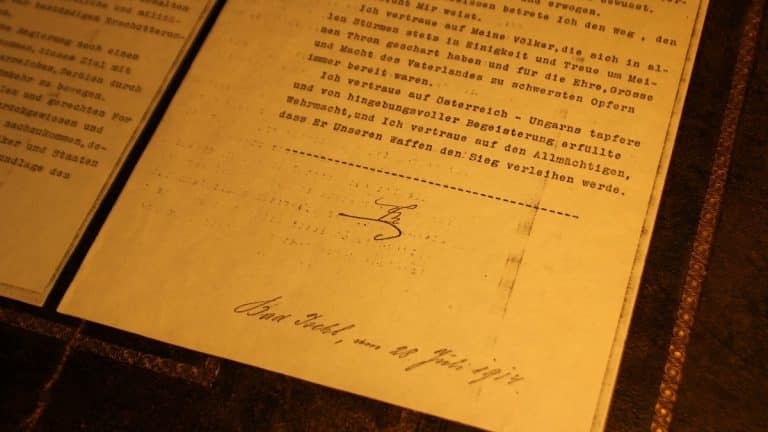 erhalten
liche und milit-
n beständigen Erschütterun-
e Regierung noch einen
ommen, dieses Ziel mit
erreichen, Serbien durch
mkehr zu bewegen.
les und gerechten For
urückgewiesen und
nachzukommen, de-
ker und Staaten
undlage den
bewusst.
und erwogen.
wissen betrete Ich den Weg, den
icht Mir weist.
Ich vertraue auf Meine Völker, die sich in al-
len Stürmen stets in Einigkeit und Treue um Mei-
nen Thron geschart haben und für die Ehre, Grösse
und Macht des Vaterlandes zu schwersten Opfern
immer bereit waren.
Ich vertraue auf Österreich - Ungarns tapfere
und von hingebungsvoller Begeisterung erfüllte
Wehrmacht, und Ich vertraue auf den Allmächtigen,
dass Er Unseren Waffen den Sieg verleihen werde.
Bad Ischl, am 28. Juli 1914.